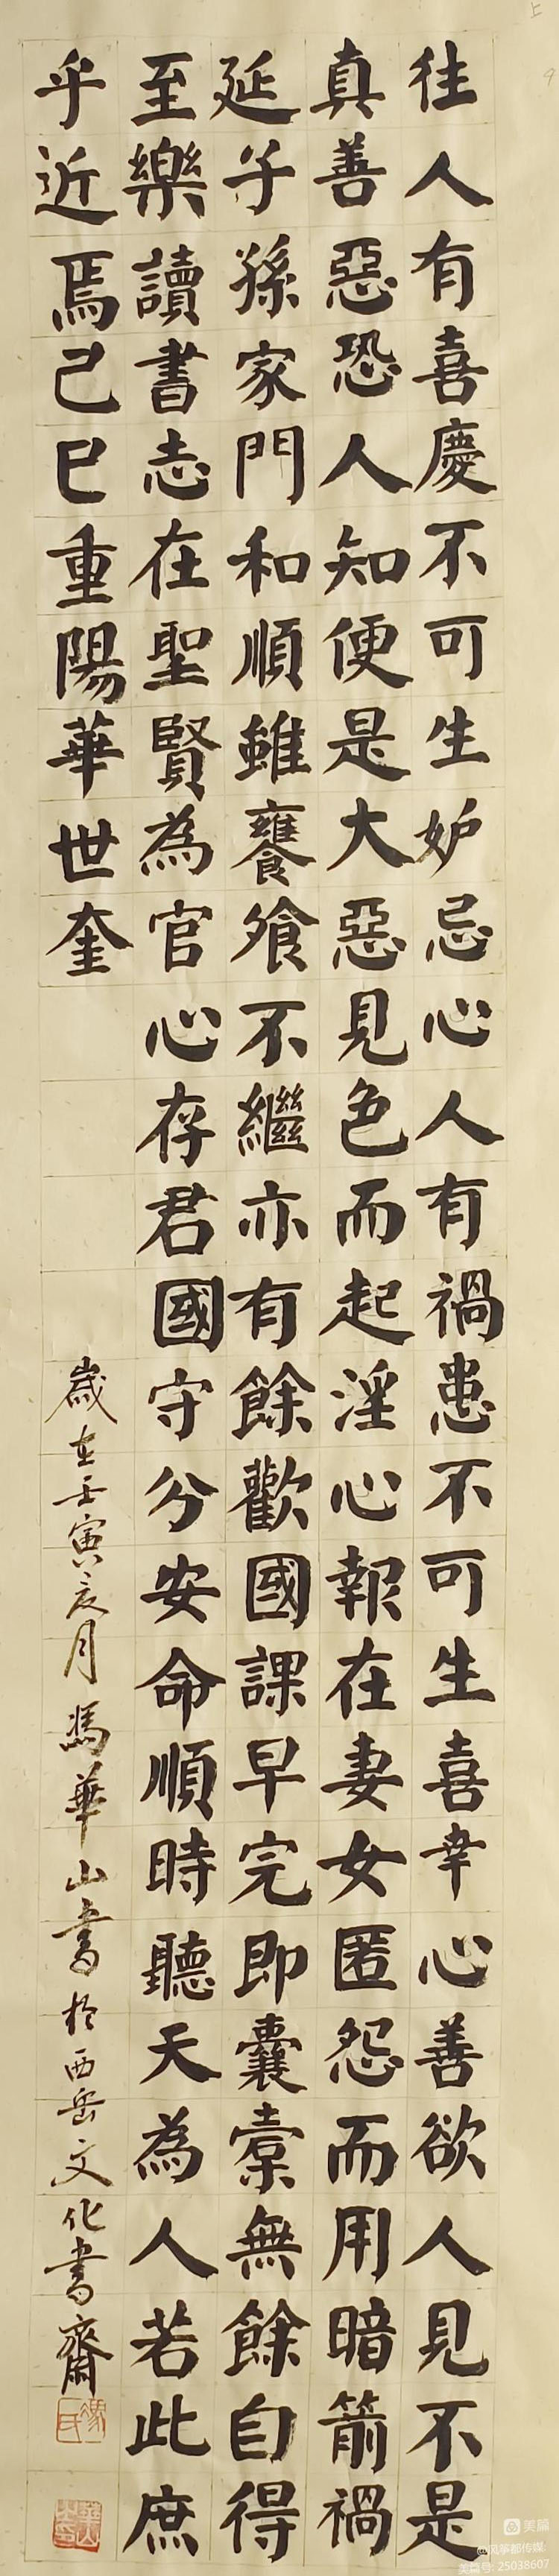 往人有喜慶不可生妒忌心人有禍患不可生喜幸心善欲人見不是
真善惡恐人知便是大惡見色而起淫心報在妻女匿怨而用暗箭禍
延子孫家門和順雖饔飧不繼亦有餘歡國課早完即囊橐無餘自得
至樂讀書志在聖賢為官心存君國守分安命順時聽天為人若此庶
乎近焉己巳重陽華世奎
歲在壬寅亥月馮華山書於西岳文化書齋
美篇
@风筝都传媒
美篇号:25038607